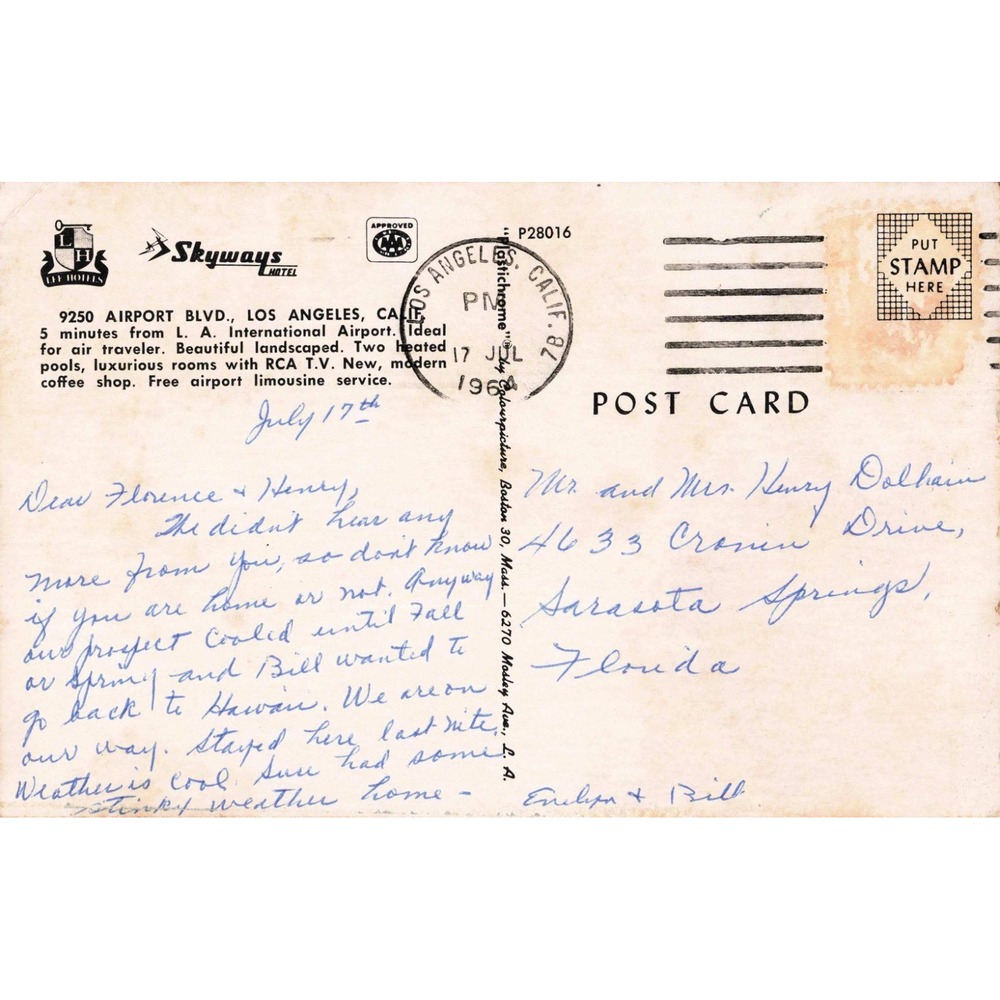 LH
LEE HOTELS
Skyways
HOTEL
APPROVED
AAA
P28016
9250 AIRPORT BLVD., LOS ANGELES, CALIF.
5 minutes from L. A. International Airport. Ideal
for air traveler. Beautiful landscaped. Two heated
pools, luxurious rooms with RCA T.V. New, modern
coffee shop. Free airport limousine service.
LOS ANGELES, CALIF. 7B
PM
17 JUL
1964
PUT
STAMP
HERE
POST CARD
"Plastichrome"® by Colourpicture, Boston 30, Mass. — 6270 Mosley Ave., L. A.
July 17th
Dear Florence & Henry,
We didn't hear any
more from you, so don't know
if you are home or not. Anyway
our prospect cooled until Fall
or Spring and Bill wanted to
go back to Hawaii. We are on
our way. Stayed here last nite.
Weather is cool. Sure had some
stinky weather home -
Evelyn & Bill
Mr. and Mrs. Henry Dolhain
4633 Cronin Drive,
Sarasota Springs,
Florida